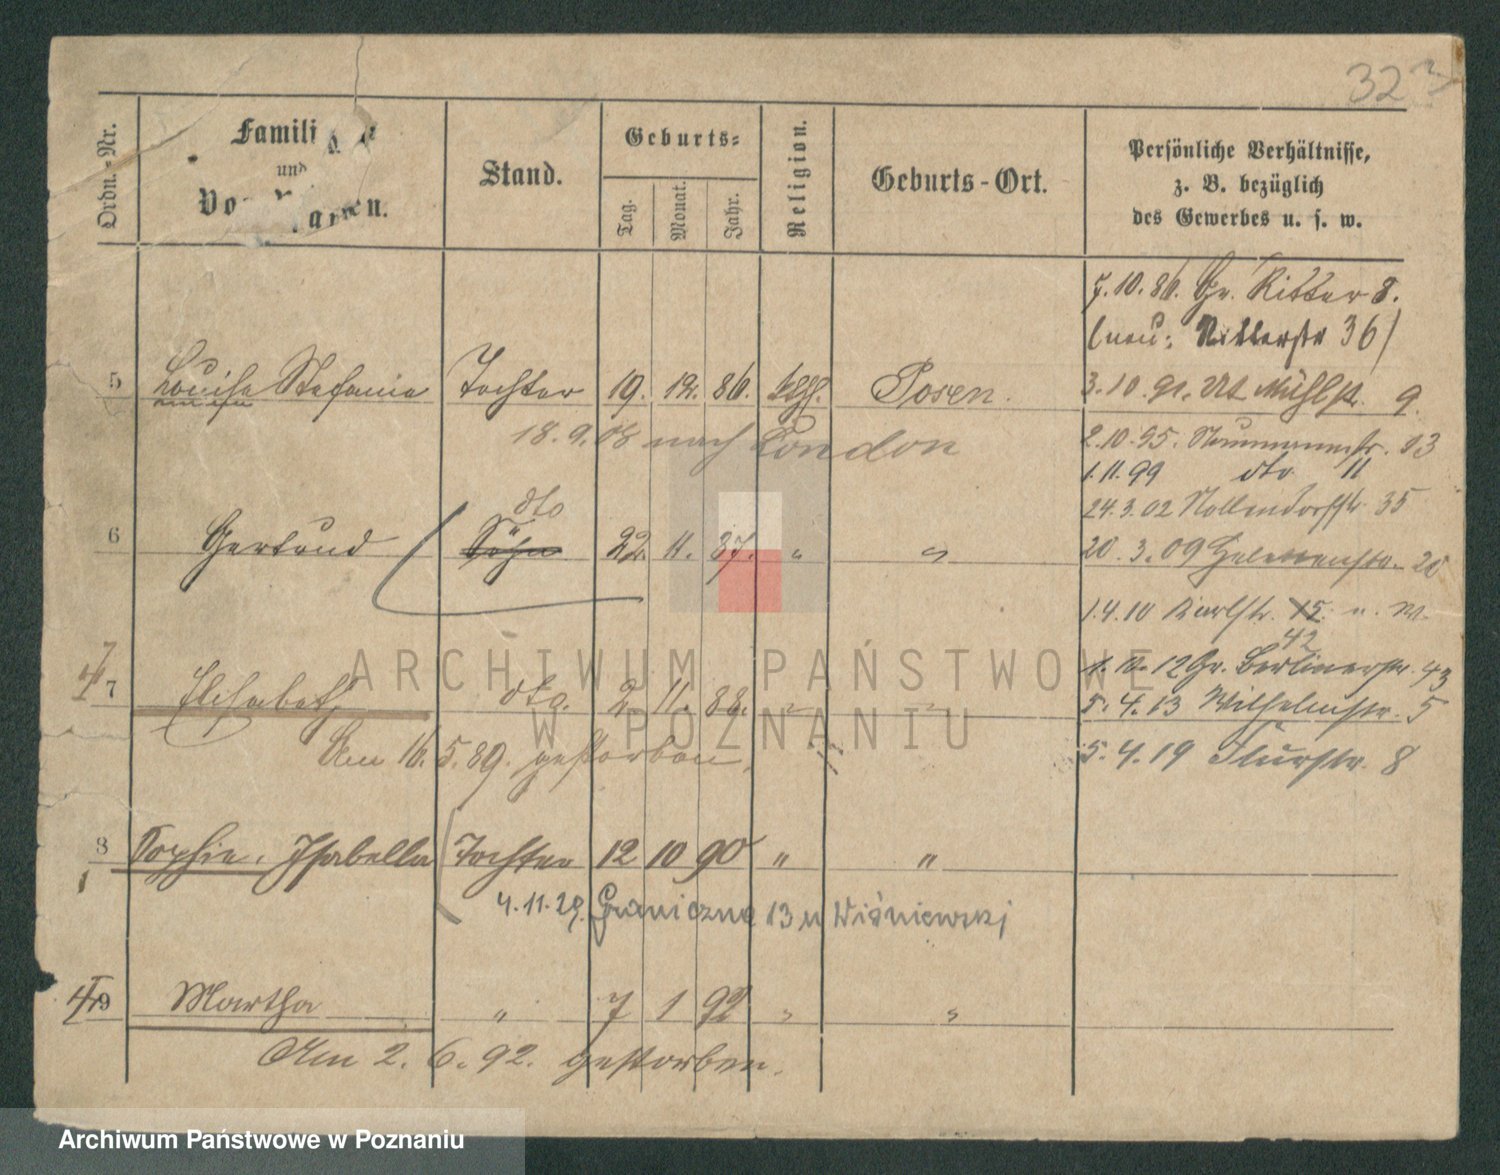 323
Ordn.-Nr.
Famili
und
Vo
en.
Stand.
Geburts-
Tag.
Monat.
Jahr.
Religion.
Geburts-Ort.
Persönliche Verhältnisse,
z. B. bezüglich
des Gewerbes u. s. w.
7.10.86. Gr. Ritter 8.
(neu: Ritterstr 36)
5 Louise Stefanie Tochter 19. 12. 86. kth. Posen. 3.10.91. Mühlstr. 9.
18.9.08 nach London
2.10.95. Naumannstr. 13
1.11.99 dto 11
24.3.02 Nollendorfstr. 35
dto
6 Gertrud Sohn 22. 11. 87. " "
20.3.09 Helenenstr. 20
1.4.10 Karlstr. 15. u. W.
42
12 Gr. Berlinerstr. 43
7 Elisabeth dto. 2. 11. 88. " "
5.4.13 Wilhelmstr. 5
Am 16.5.89. gestorben.
5.4.19 Flurstr. 8
8 Sophie, Isabella Tochter 12 10 90 " "
4.11.29. Graniczna 13 u Wiśniewski
9 Martha " 7 1 92 " "
Am 2.6.92. gestorben.
ARCHIWUM PAŃSTWOWE
W POZNANIU
Archiwum Państwowe w Poznaniu